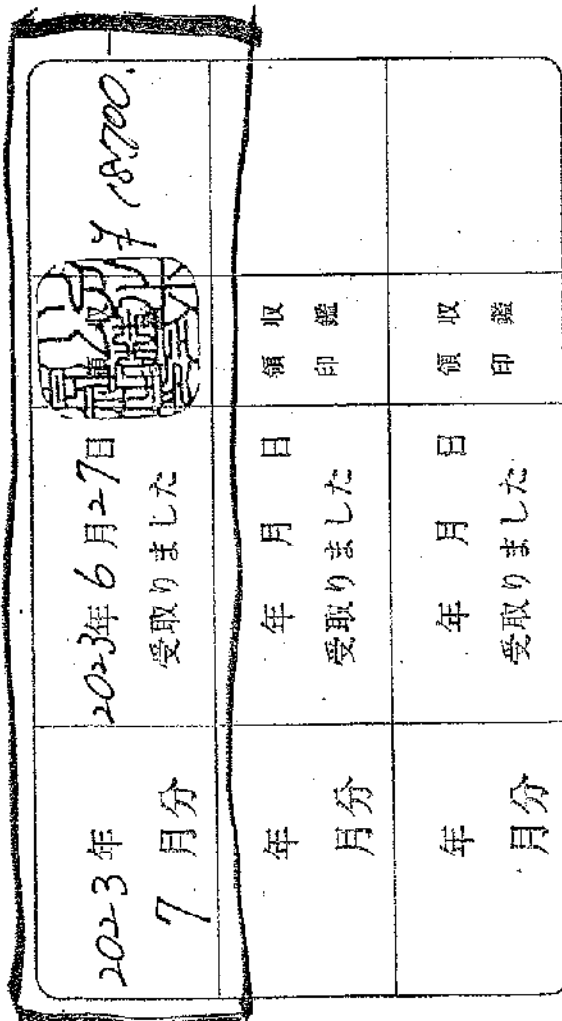 2023年
7月分
2023年6月27日
受取りました
領収
¥18,700.
年
月分
年 月 日
受取りました
領収
印鑑
年
月分
年 月 日
受取りました
領収
印鑑